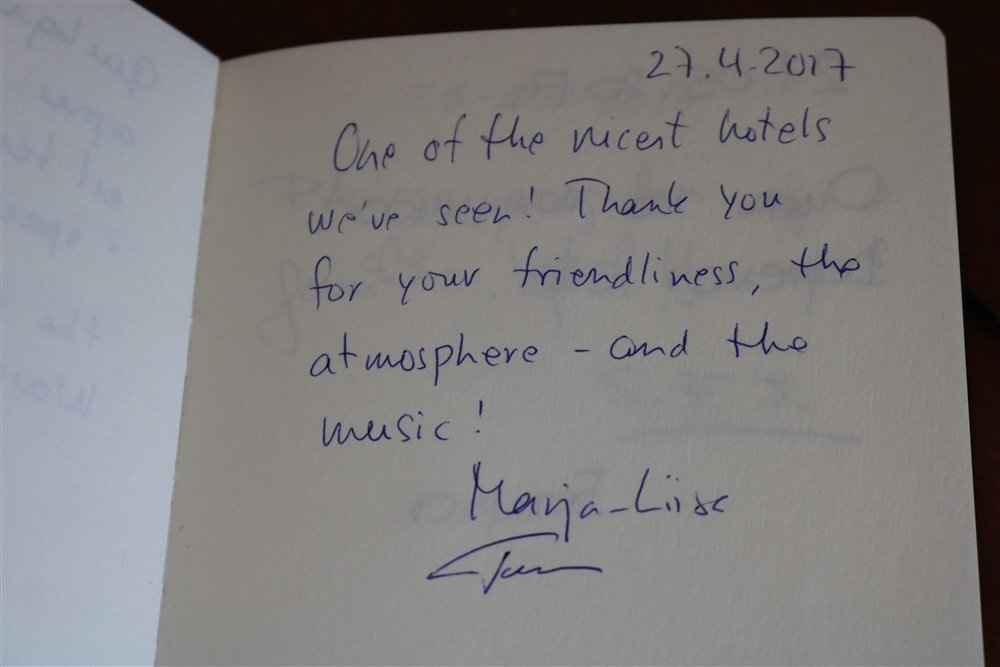 27.4.2017
One of the nicest hotels
we've seen! Thank you
for your friendliness, the
atmosphere - and the
music!
Marja-Liisa